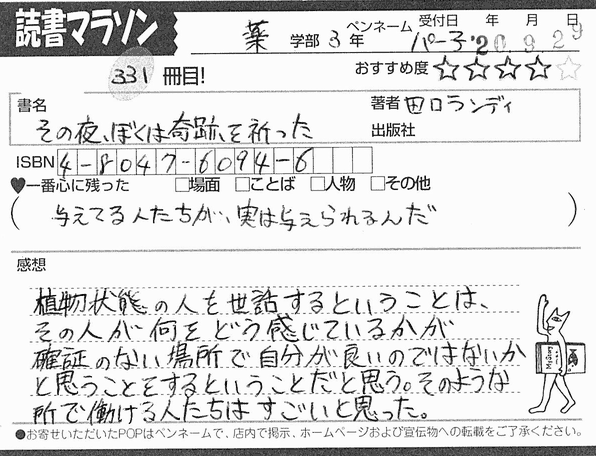 読書マラソン
薬 学部 3年 ペンネーム パー子 受付日 年 月 日 '20 9 29
331 冊目! おすすめ度 ☆☆☆☆☆
書名 著者 田口ランディ
その夜、ぼくは奇跡を祈った 出版社
ISBN 4-8047-6094-6
♥一番心に残った □場面 □ことば □人物 □その他
(与えてる人たちが、実は与えられるんだ)
感想
植物状態の人を世話するということは、
その人が何をどう感じているかが
確証のない場所で自分が良いのではないか
と思うことをするということだと思う。そのような
所で働ける人たちはすごいと思った。
●お寄せいただいたPOPはペンネームで、店内で掲示、ホームページおよび宣伝物への転載をご了承ください。